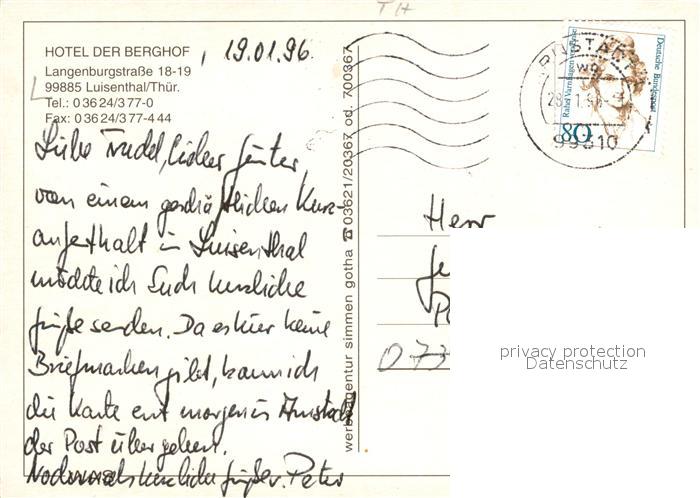 TH
HOTEL DER BERGHOF
Langenburgstraße 18-19
99885 Luisenthal/Thür.
Tel.: 0 36 24/3 77-0
Fax: 0 36 24/3 77-4 44
, 19.01.96.
Liebe Trudel, lieber Günter,
von einem geschäftlichen Kurz-
aufenthalt in Luisenthal
möchte ich Euch herzliche
Grüße senden. Da es hier keine
Briefmarken gibt, kann ich
die Karte erst morgen in Arnstadt
der Post übergeben.
Nochmals herzliche Grüße v. Peter
werbeagentur simmen gotha ☎ 03621/20367 od. 700367
ARNSTADT
99310
Deutsche Bundespost
Rahel Varnhagen von Ense
80
Herr
073
privacy protection
Datenschutz